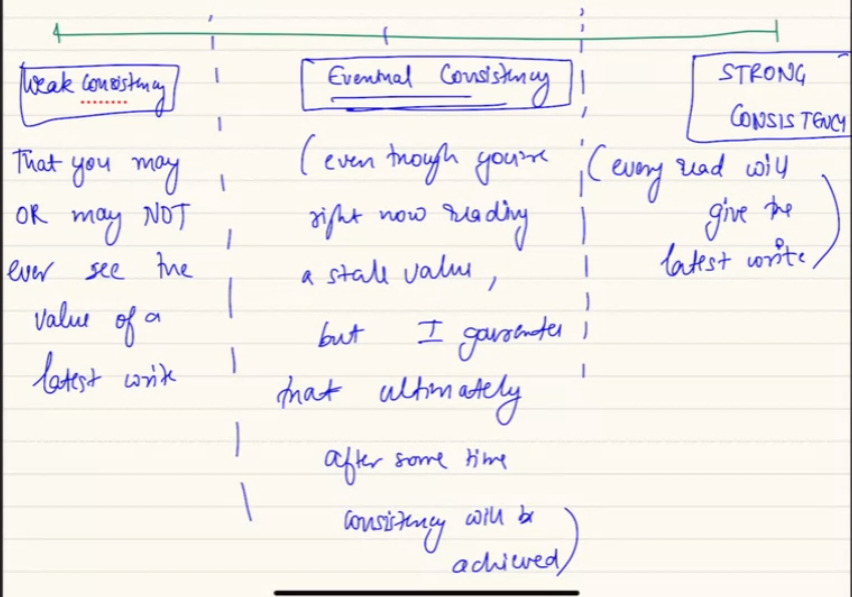 Weak Consistency
That you may
OR may NOT
ever see the
value of a
latest write
Eventual Consistency
(even though you're
right now reading
a stale value,
but I guarantee
that ultimately
after some time
consistency will be
achieved)
STRONG
CONSISTENCY
(every read will
give the
latest write)